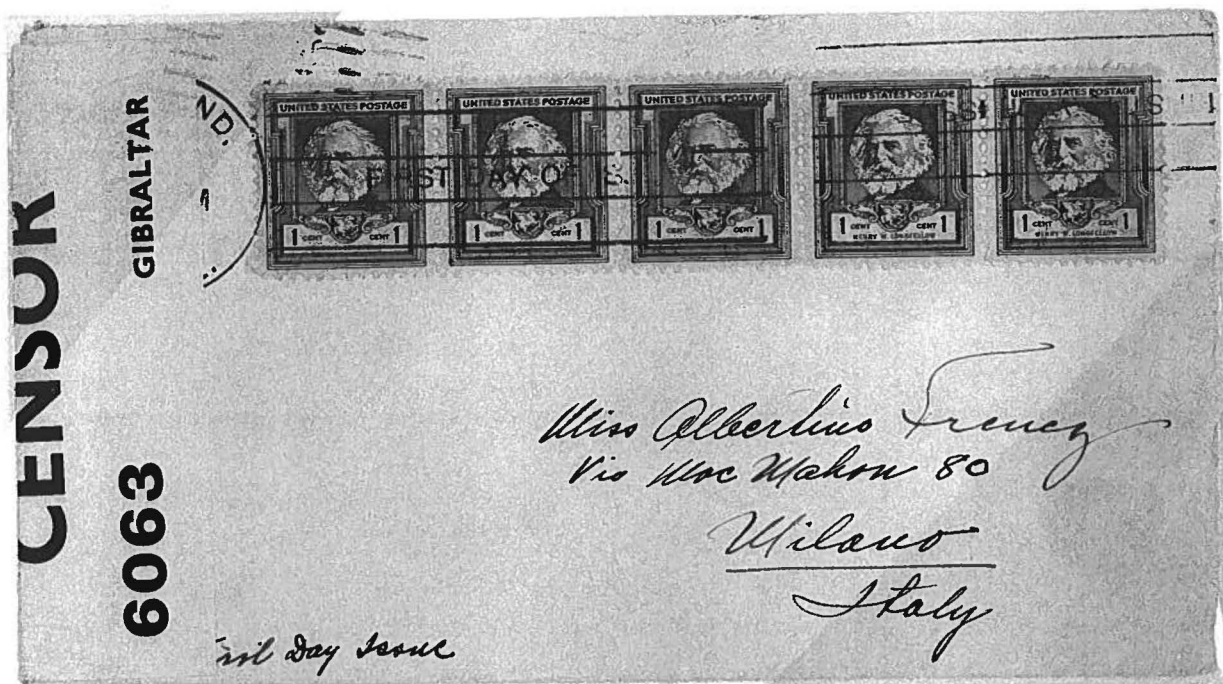 CENSOR
GIBRALTAR
6063
ND.
UNITED STATES POSTAGE
1 CENT CENT 1
UNITED STATES POSTAGE
1 CENT CENT 1
UNITED STATES POSTAGE
1 CENT CENT 1
UNITED STATES POSTAGE
1 CENT CENT 1
HENRY W. LONGFELLOW
UNITED STATES POSTAGE
1 CENT CENT 1
HENRY W. LONGFELLOW
FIRST DAY OF
Miss Albertina
Via Mac Mahon 80
Milano
Italy
Day Issue